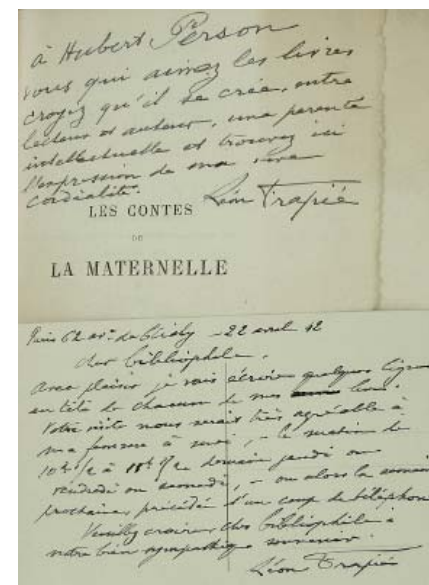 à Hubert Person
vous qui aimez les livres
croyez qu'il se crée, entre
lecteur et auteur, une parenté
intellectuelle et trouvez ici
l'expression de ma vive
cordialité.
Léon Frapié
LES CONTES
DE
LA MATERNELLE
Paris 62 av. de Clichy - 22 avril 42
cher bibliophile,
Avec plaisir je vais écrire quelques lignes
en tête de chacun de mes livres.
Votre visite nous serait très agréable à
ma femme à moi, - le matin de
10h 1/2 à 11h 1/2 demain jeudi ou
vendredi ou samedi, - ou alors la semaine
prochaine, précédée d'un coup de téléphone
Veuillez croire, cher bibliophile à
notre bien sympathique souvenir.
Léon Frapié